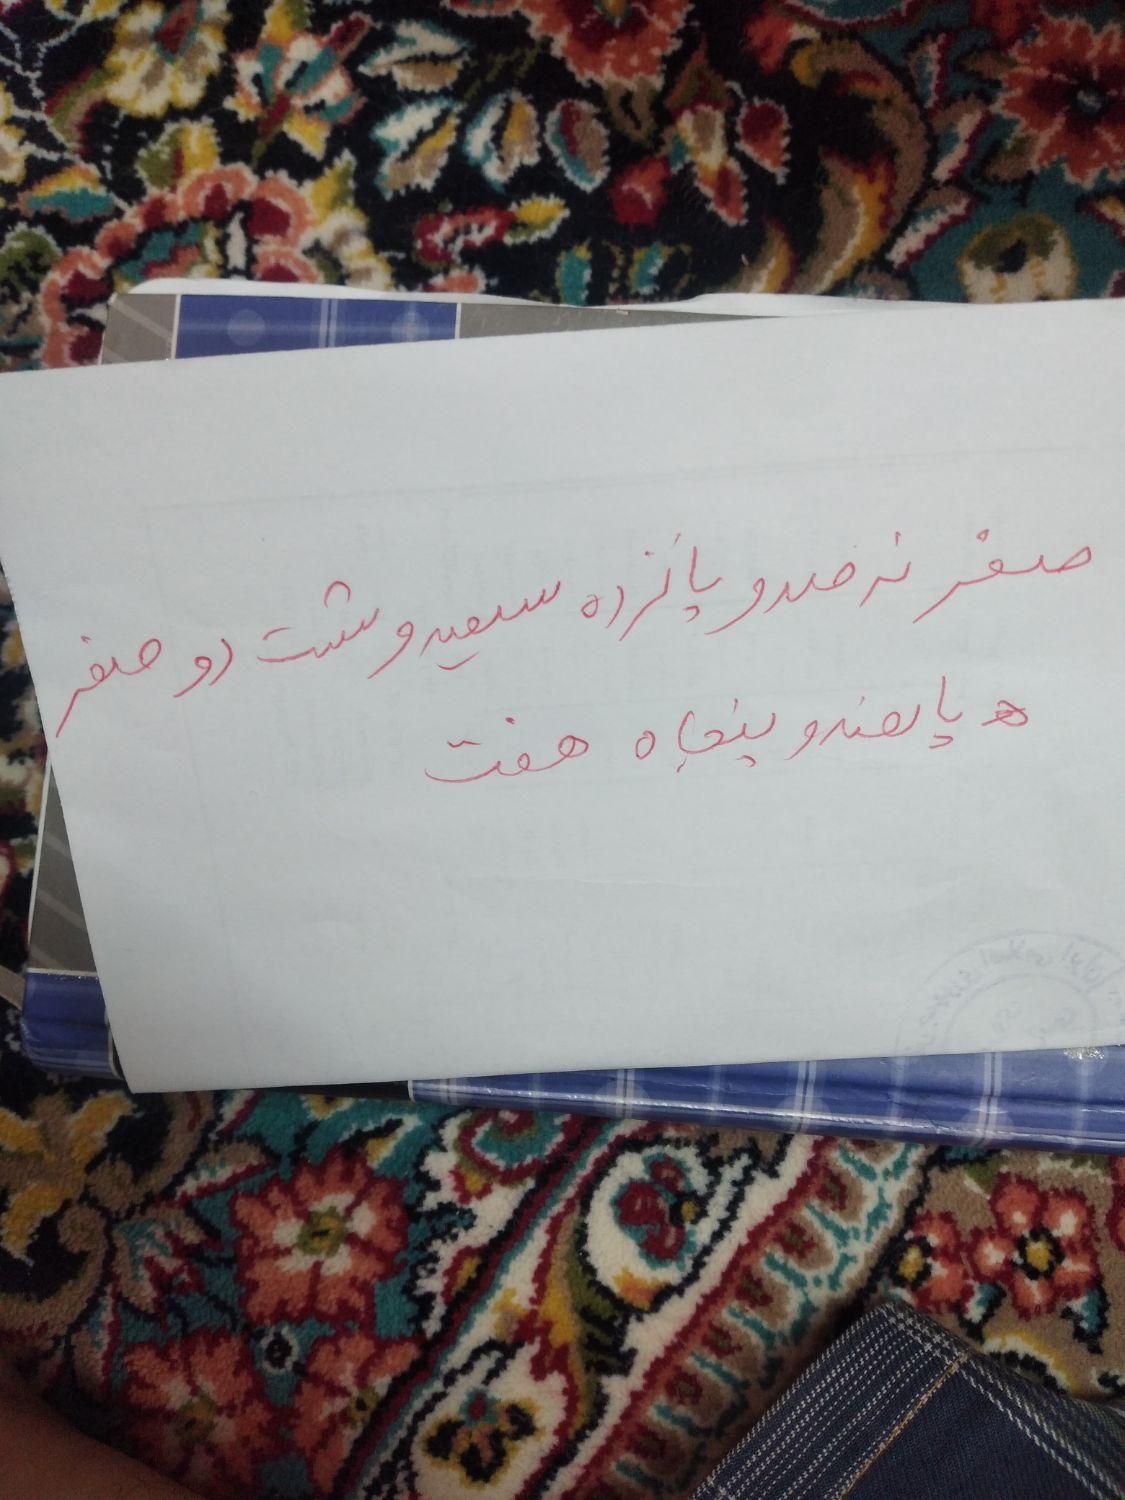 صفر نه صدو پانزده سیصدو شست دو صفر
ه پانصدو پنجاه هفت